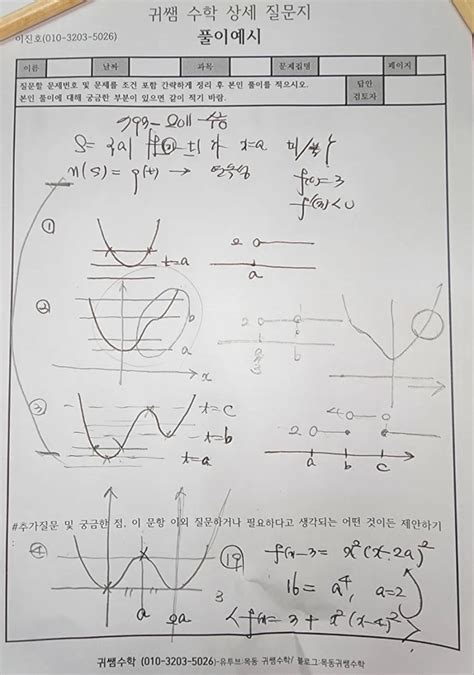 귀쌤 수학 상세 질문지
이진호(010-3203-5026)
풀이예시
이름 날짜 과목 문제집명 페이지
질문할 문제번호 및 문제를 조건 포함 간략하게 정리 후 본인 풀이를 적으시오.
본인 풀이에 대해 궁금한 부분이 있으면 같이 적기 바람.
답안
검토자
n(S) = g(t) →
f(0)=3
①
t=a
2
a
②
b
a
x
2
③
t=c
t=b
t=a
4
2
a b c
#추가질문 및 궁금한 점, 이 문항 이외 질문하거나 필요하다고 생각되는 어떤 것이든 제안하기
:
④
a 2a
3
⑲
f(x)-3 = x²(x-2a)²
16 = a⁴, a=2
f(x) = 3 + x²(x-4)²
귀쌤수학 (010-3203-5026)-유투브:목동 귀쌤수학/ 블로그:목동귀쌤수학